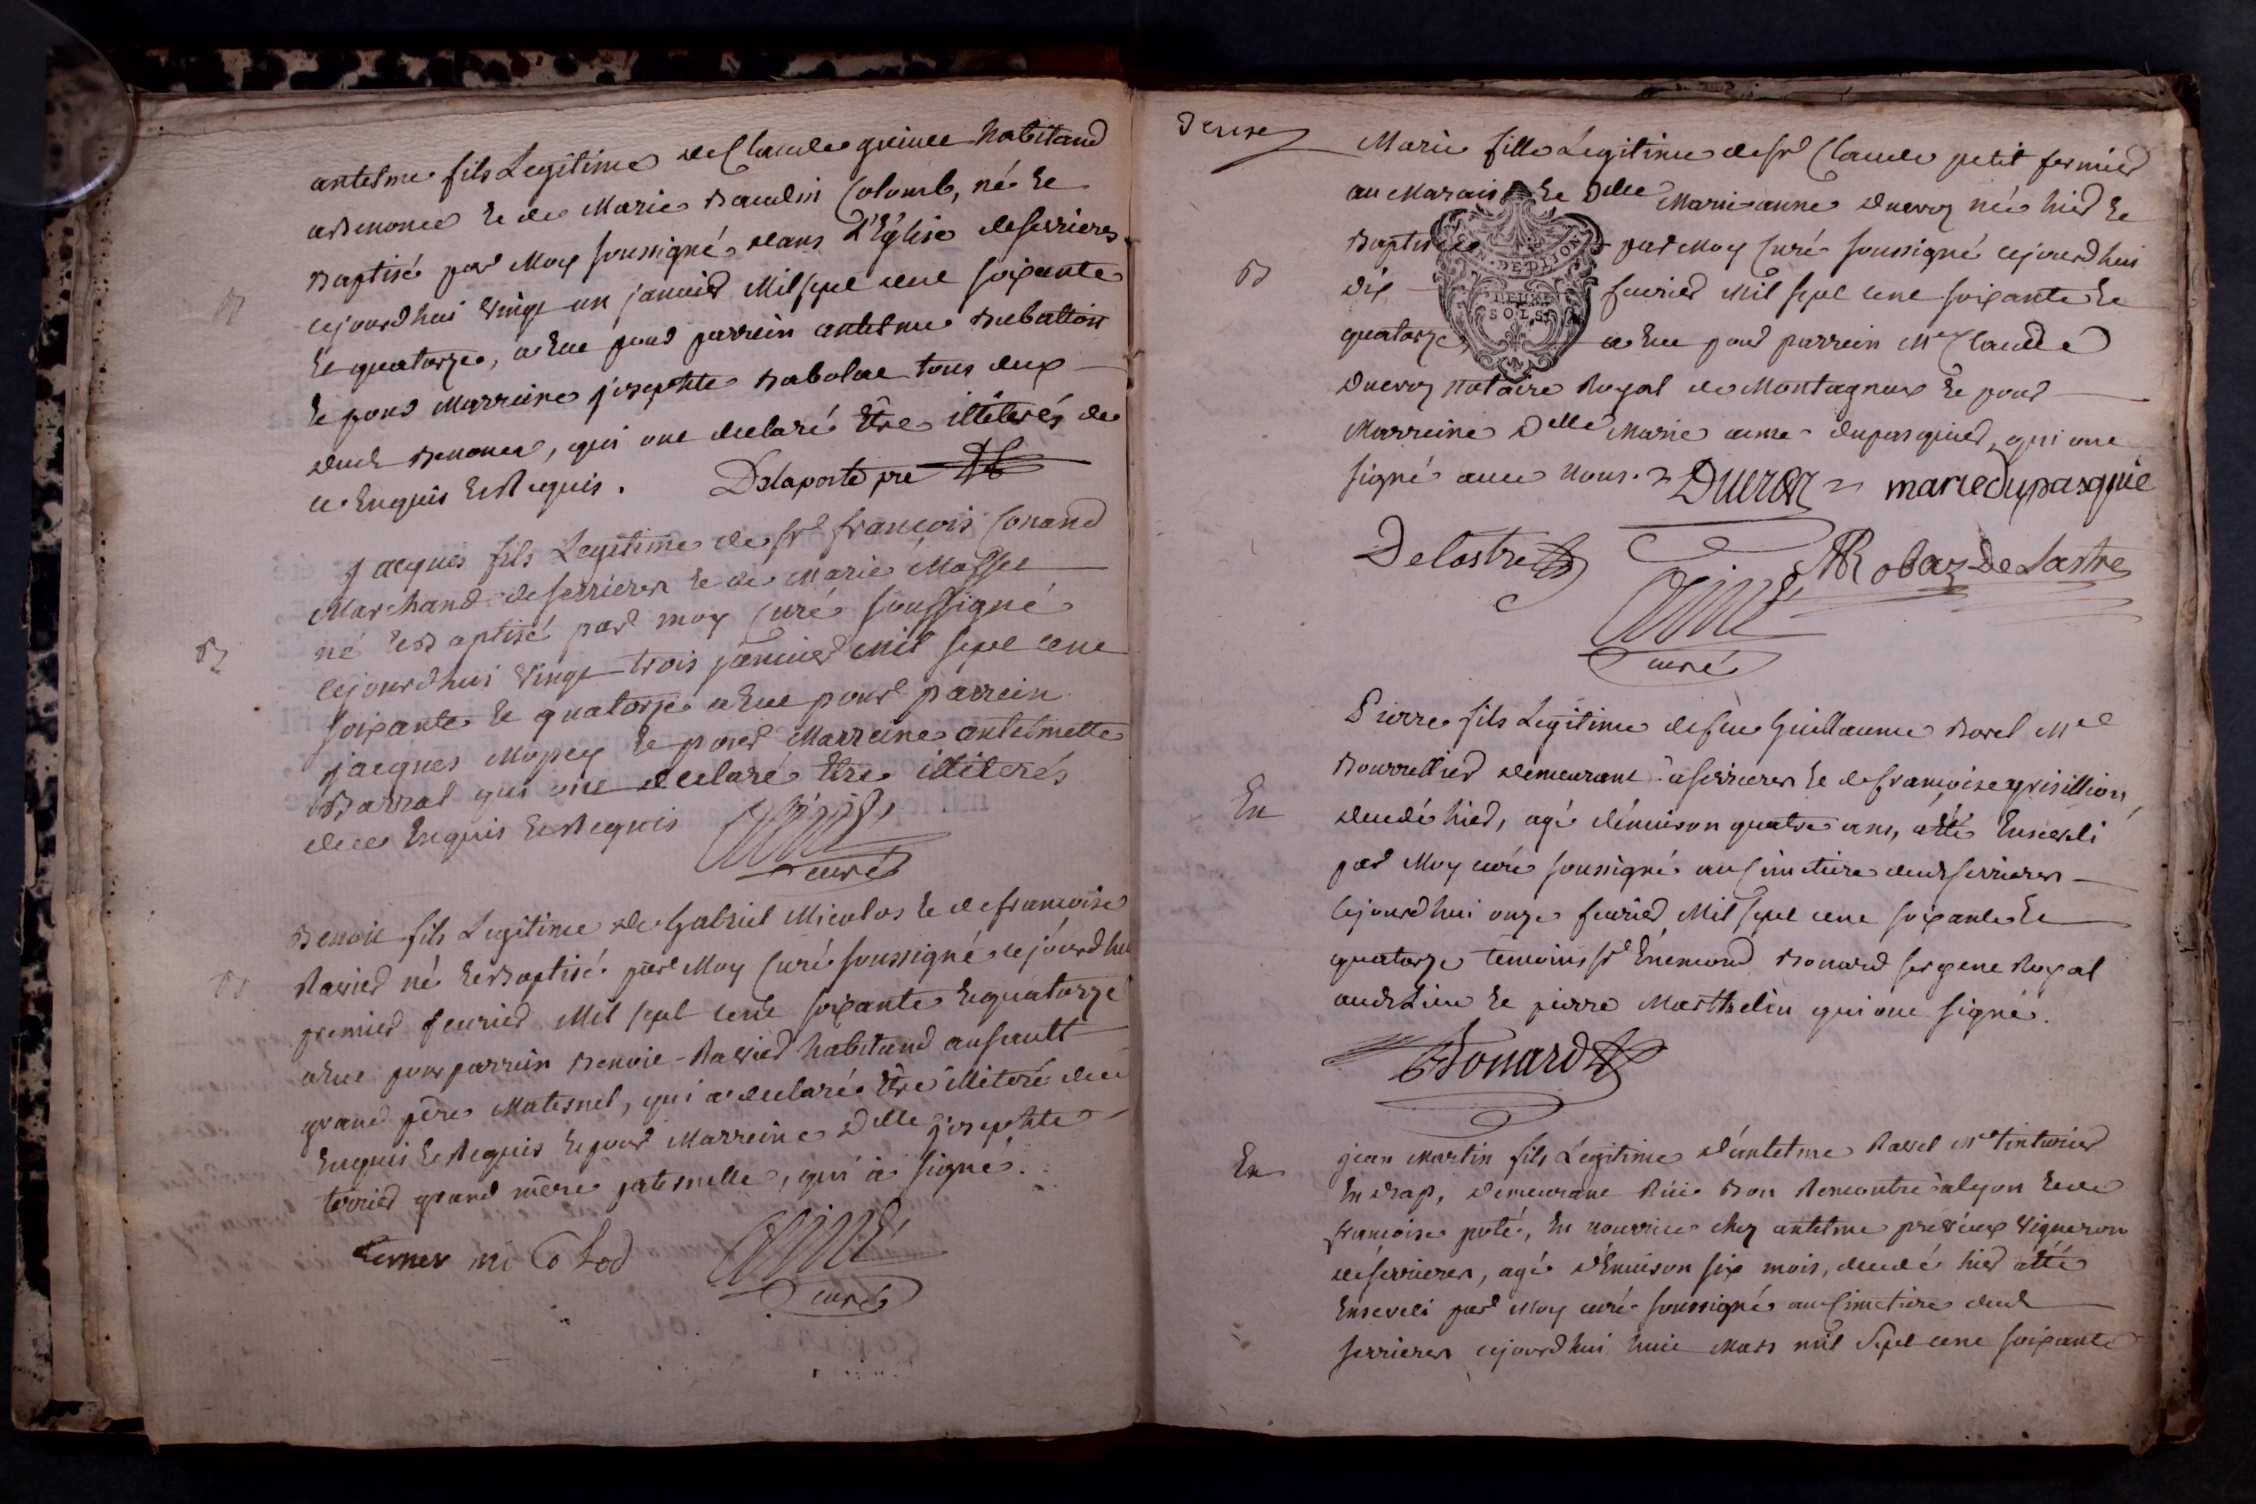 antelme fils Legitime de Claude habitand
a Benonce Et de Marie Baudin Colomb, né Et
Baptisé par Moy soussigné dans L'Eglise de serrieres
cejourdhui vingt un janvier Mil sept cent soixante
B
Et quatorze, a Eue pour parrein antelme
Et pour Marreine josephte tous deux
dud Benonce, qui ont declaré Être illiterés de
ce Enquis Et Requis. Delaporte pre
jacques fils Legitime de sr françois Conand
Marchand de serrieres Et de Marie
né Et Baptisé par moy Curé soussigné
B
cejourdhui vingt trois janvier Mil sept cent
soixante Et quatorze a Eue pour parrein
jacques Et pour Marreine antelmette
Barral qui ont declaré Être illiterés
de ce Enquis Et Requis
curé
Benoit fils Legitime de Gabriel Micolos Et de francoise
Ravier né Et Baptisé par Moy Curé soussigné cejourdhui
B
premier fevrier Mil sept cent soixante Et quatorze
a Eue pour parrein Benoit Ravier habitand au sault
grand pere Maternel, qui a declaré Être illiteré de ce
Enquis Et Requis Et pour Marreine Delle josephte
terrier grand mère paternelle, qui a signé.
curé
Deuse
Marie fille Legitime de sr Claude petit fermier
au Marais Et Delle Marie anne Ducroz née hier Et
Baptisée par Moy Curé soussigné cejourdhui
GEN. DE DIJON
B
dix fevrier Mil sept cent soixante Et
DEUX
SOLS
quatorze, a Eue pour parrein Mre Claude
Ducroz notaire Royal de Montagneux Et pour
Marreine Delle Marie anne dupasquier, qui ont
signé avec nous. Ducroz marie dupasquie
Delastre Robaz De Lastre
curé
Pierre fils Legitime de feu Guillaume Borel Mre
Bourrellier demeurant à serrieres Et de francoise grisillion,
En
decedé hier, agé d'Environ quatre ans, a Été Enseveli
par Moy curé soussigné au Cimetiere dud serrieres
cejourdhui onze fevrier Mil sept cent soixante Et
quatorze temoins sr Énemond Bonard sergent Royal
aud Lieu Et pierre Marthelin qui ont signé.
Bonard
jean Martin fils Légitime d'antelme Ravel Mre tinturier
En
En drap, demeurant Rüe Bon Rencontre à lyon Et de
francoise puté, En nourrice chez antelme vigneron
de serrieres, agé d'Environ six mois, decedé hier a Été
Enseveli par Moy curé soussigné au Cimetiere dud
serrieres cejourdhui huit Mars mil sept cent soixante